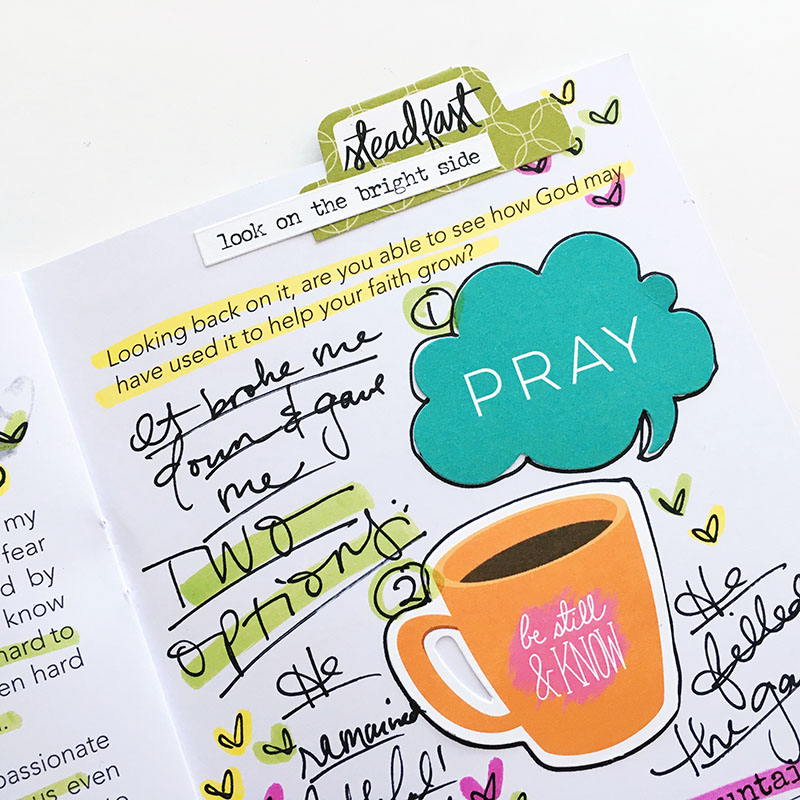 steadfast
look on the bright side
Looking back on it, are you able to see how God may
have used it to help your faith grow?
It broke me
down & gave
me
TWO
OPTIONS:
1
PRAY
2
be still
& KNOW
He
remained
He
filled
the
my
fear
d by
know
hard to
en hard
passionate
us even